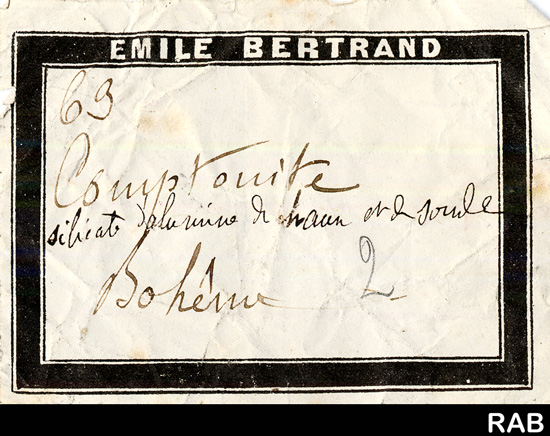 EMILE BERTRAND
63
Comptonite
silicate d'alumine de chaux et de soude
Bohême 2
RAB